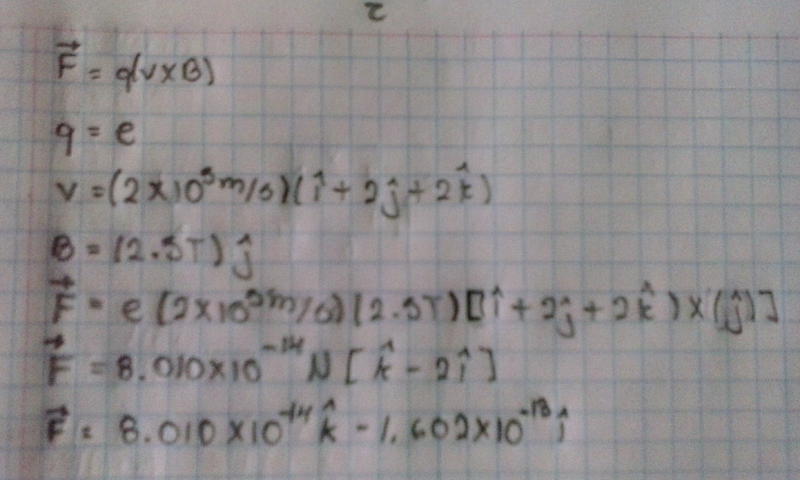 2
F⃗ = q(v×B)
q = e
v = (2×10⁵m/s)(î + 2ĵ + 2k̂)
B = (2.5T) ĵ
F⃗ = e(2×10⁵m/s)(2.5T)[î + 2ĵ + 2k̂)×(ĵ)]
F⃗ = 8.010×10⁻¹⁴ N [k̂ - 2î]
F⃗ = 8.010×10⁻¹⁴ k̂ - 1.602×10⁻¹³ î